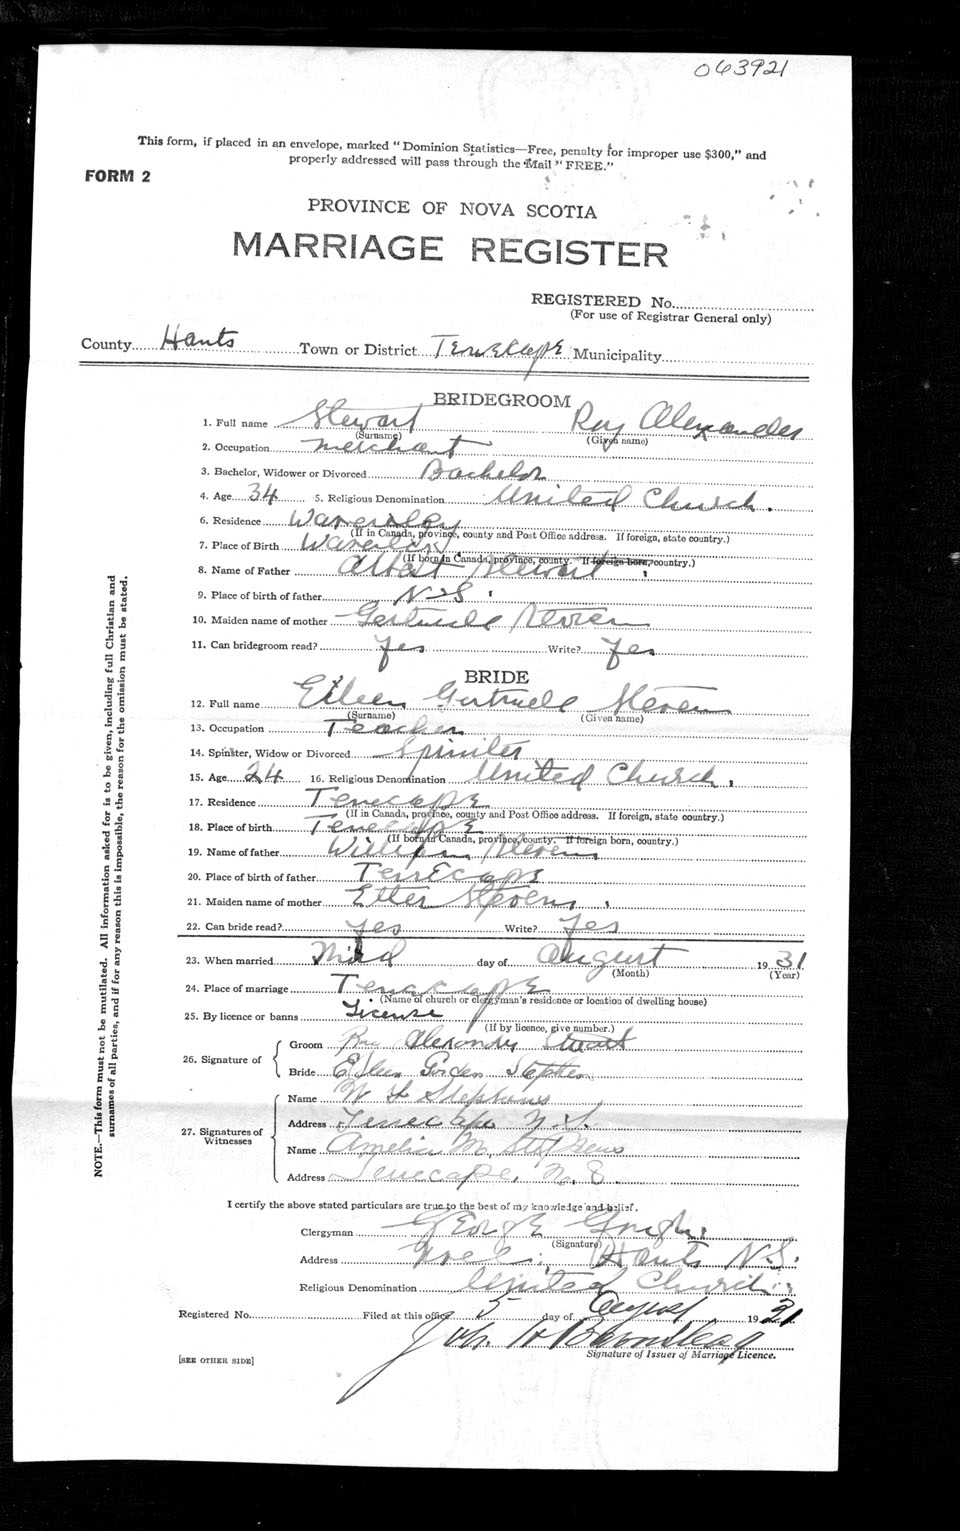 063921
This form, if placed in an envelope, marked "Dominion Statistics—Free, penalty for improper use $300," and
properly addressed will pass through the Mail "FREE."
FORM 2
PROVINCE OF NOVA SCOTIA
MARRIAGE REGISTER
REGISTERED No.
(For use of Registrar General only)
County Hants Town or District Tenecape Municipality
BRIDEGROOM
1. Full name Stewart Roy Alexander
(Surname) (Given name)
2. Occupation merchant
3. Bachelor, Widower or Divorced Bachelor
4. Age 34 5. Religious Denomination United Church.
6. Residence Waverley
(If in Canada, province, county and Post Office address. If foreign, state country.)
7. Place of Birth Waverley
(If born in Canada, province, county. If foreign born, country.)
8. Name of Father Albert Stewart
9. Place of birth of father N S
10. Maiden name of mother Gertrude
11. Can bridegroom read? Yes Write? Yes
BRIDE
12. Full name Eileen Gertrude Steven
(Surname) (Given name)
13. Occupation Teacher
14. Spinster, Widow or Divorced Spinster
15. Age 24 16. Religious Denomination United Church.
17. Residence Tenecape
(If in Canada, province, county and Post Office address. If foreign, state country.)
18. Place of birth Tenecape
(If born in Canada, province, county. If foreign born, country.)
19. Name of father William Steven
20. Place of birth of father Tenecape
21. Maiden name of mother Etter Stevens
22. Can bride read? Yes Write? Yes
23. When married Third day of August 1931
(Month) (Year)
24. Place of marriage Tenecape
(Name of church or clergyman's residence or location of dwelling house)
25. By licence or banns License
(If by licence, give number.)
26. Signature of
Groom Roy Alexander Stewart
Bride Eileen Stephen
27. Signatures of Witnesses
Name W Stephens
Address Tenecape N.S.
Name Amelia M. Stephens
Address Tenecape, N.S.
I certify the above stated particulars are true to the best of my knowledge and belief.
Clergyman George Gough
(Signature)
Address Noel, Hants N.S.
Religious Denomination United Church
Registered No. Filed at this office 5 day of August 1931
Joh. H
Signature of Issuer of Marriage Licence.
[SEE OTHER SIDE]
NOTE.—This form must not be mutilated. All information asked for is to be given, including full Christian and
surnames of all parties, and if for any reason this is impossible, the reason for the omission must be stated.